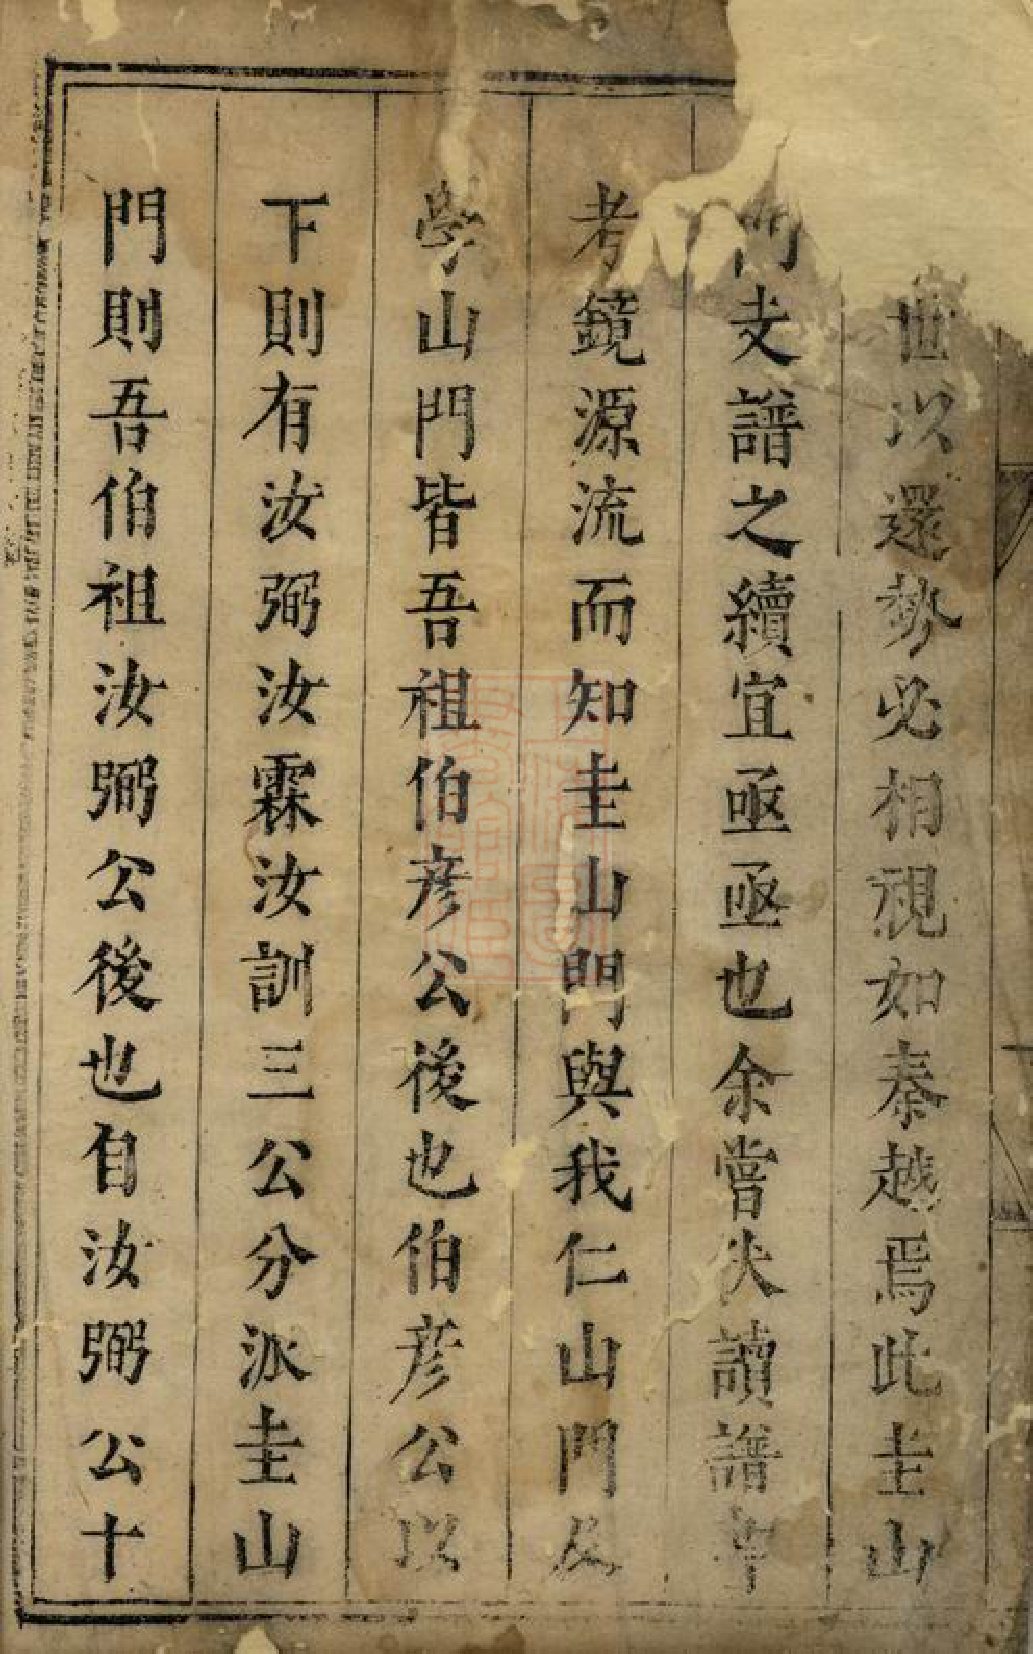 世以還勢必相視如秦越焉此圭山
門支譜之續宜亟亟也余嘗伏讀譜
考鏡源流而知圭山門與我仁山門及
學山門皆吾祖伯彥公後也伯彥公以
下則有汝弼汝霖汝訓三公分派圭山
門則吾伯祖汝弼公後也自汝弼公十